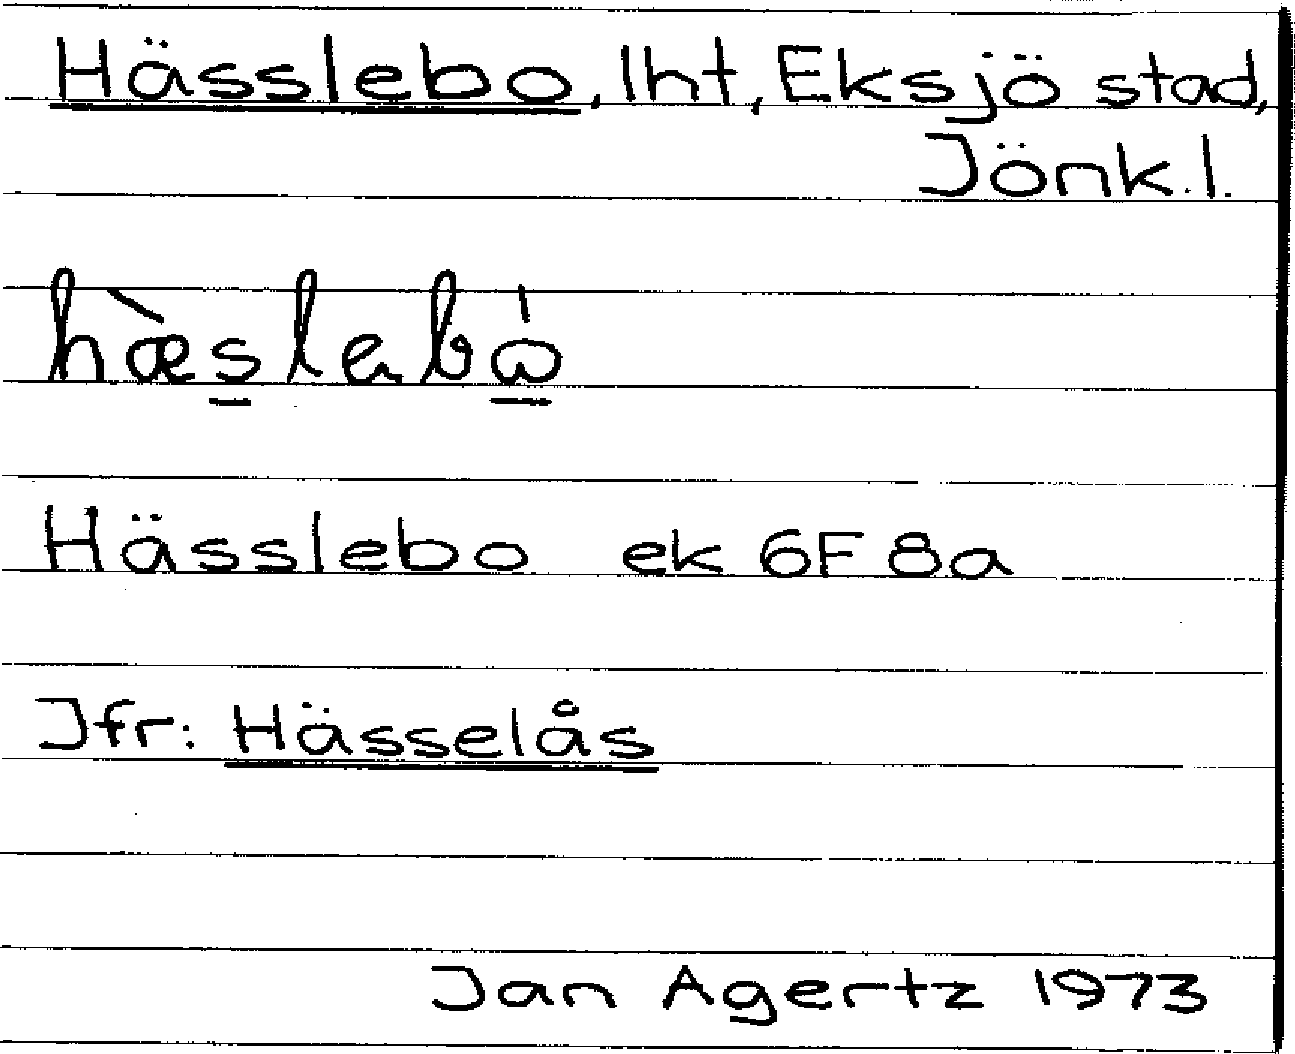 Hässlebo, lht, Eksjö stad,
Jönk. l.
hæ̀slabó
Hässlebo ek 6F 8a
Jfr: Hässelås
Jan Agertz 1973